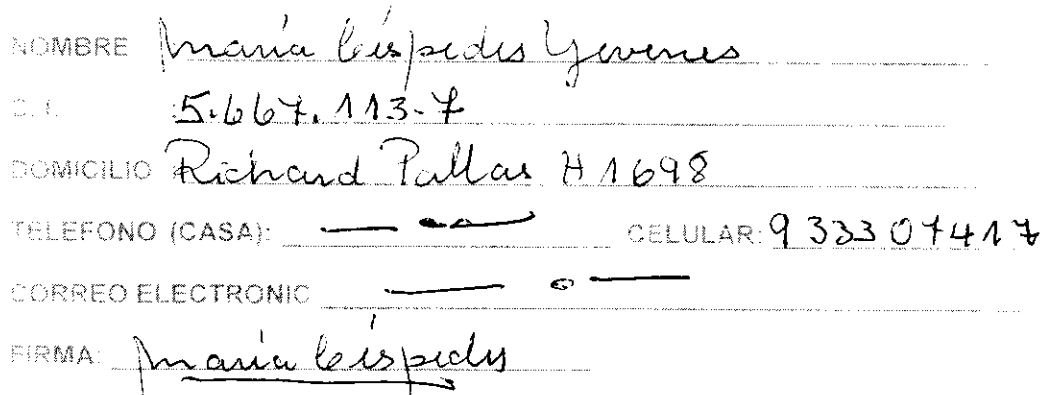 NOMBRE María Céspedes Yevenes
C. I. 5.667.113-7
DOMICILIO Richard Pallas # 1698
TELEFONO (CASA): — — CELULAR: 933307417
CORREO ELECTRONIC — o —
FIRMA: María Céspedes